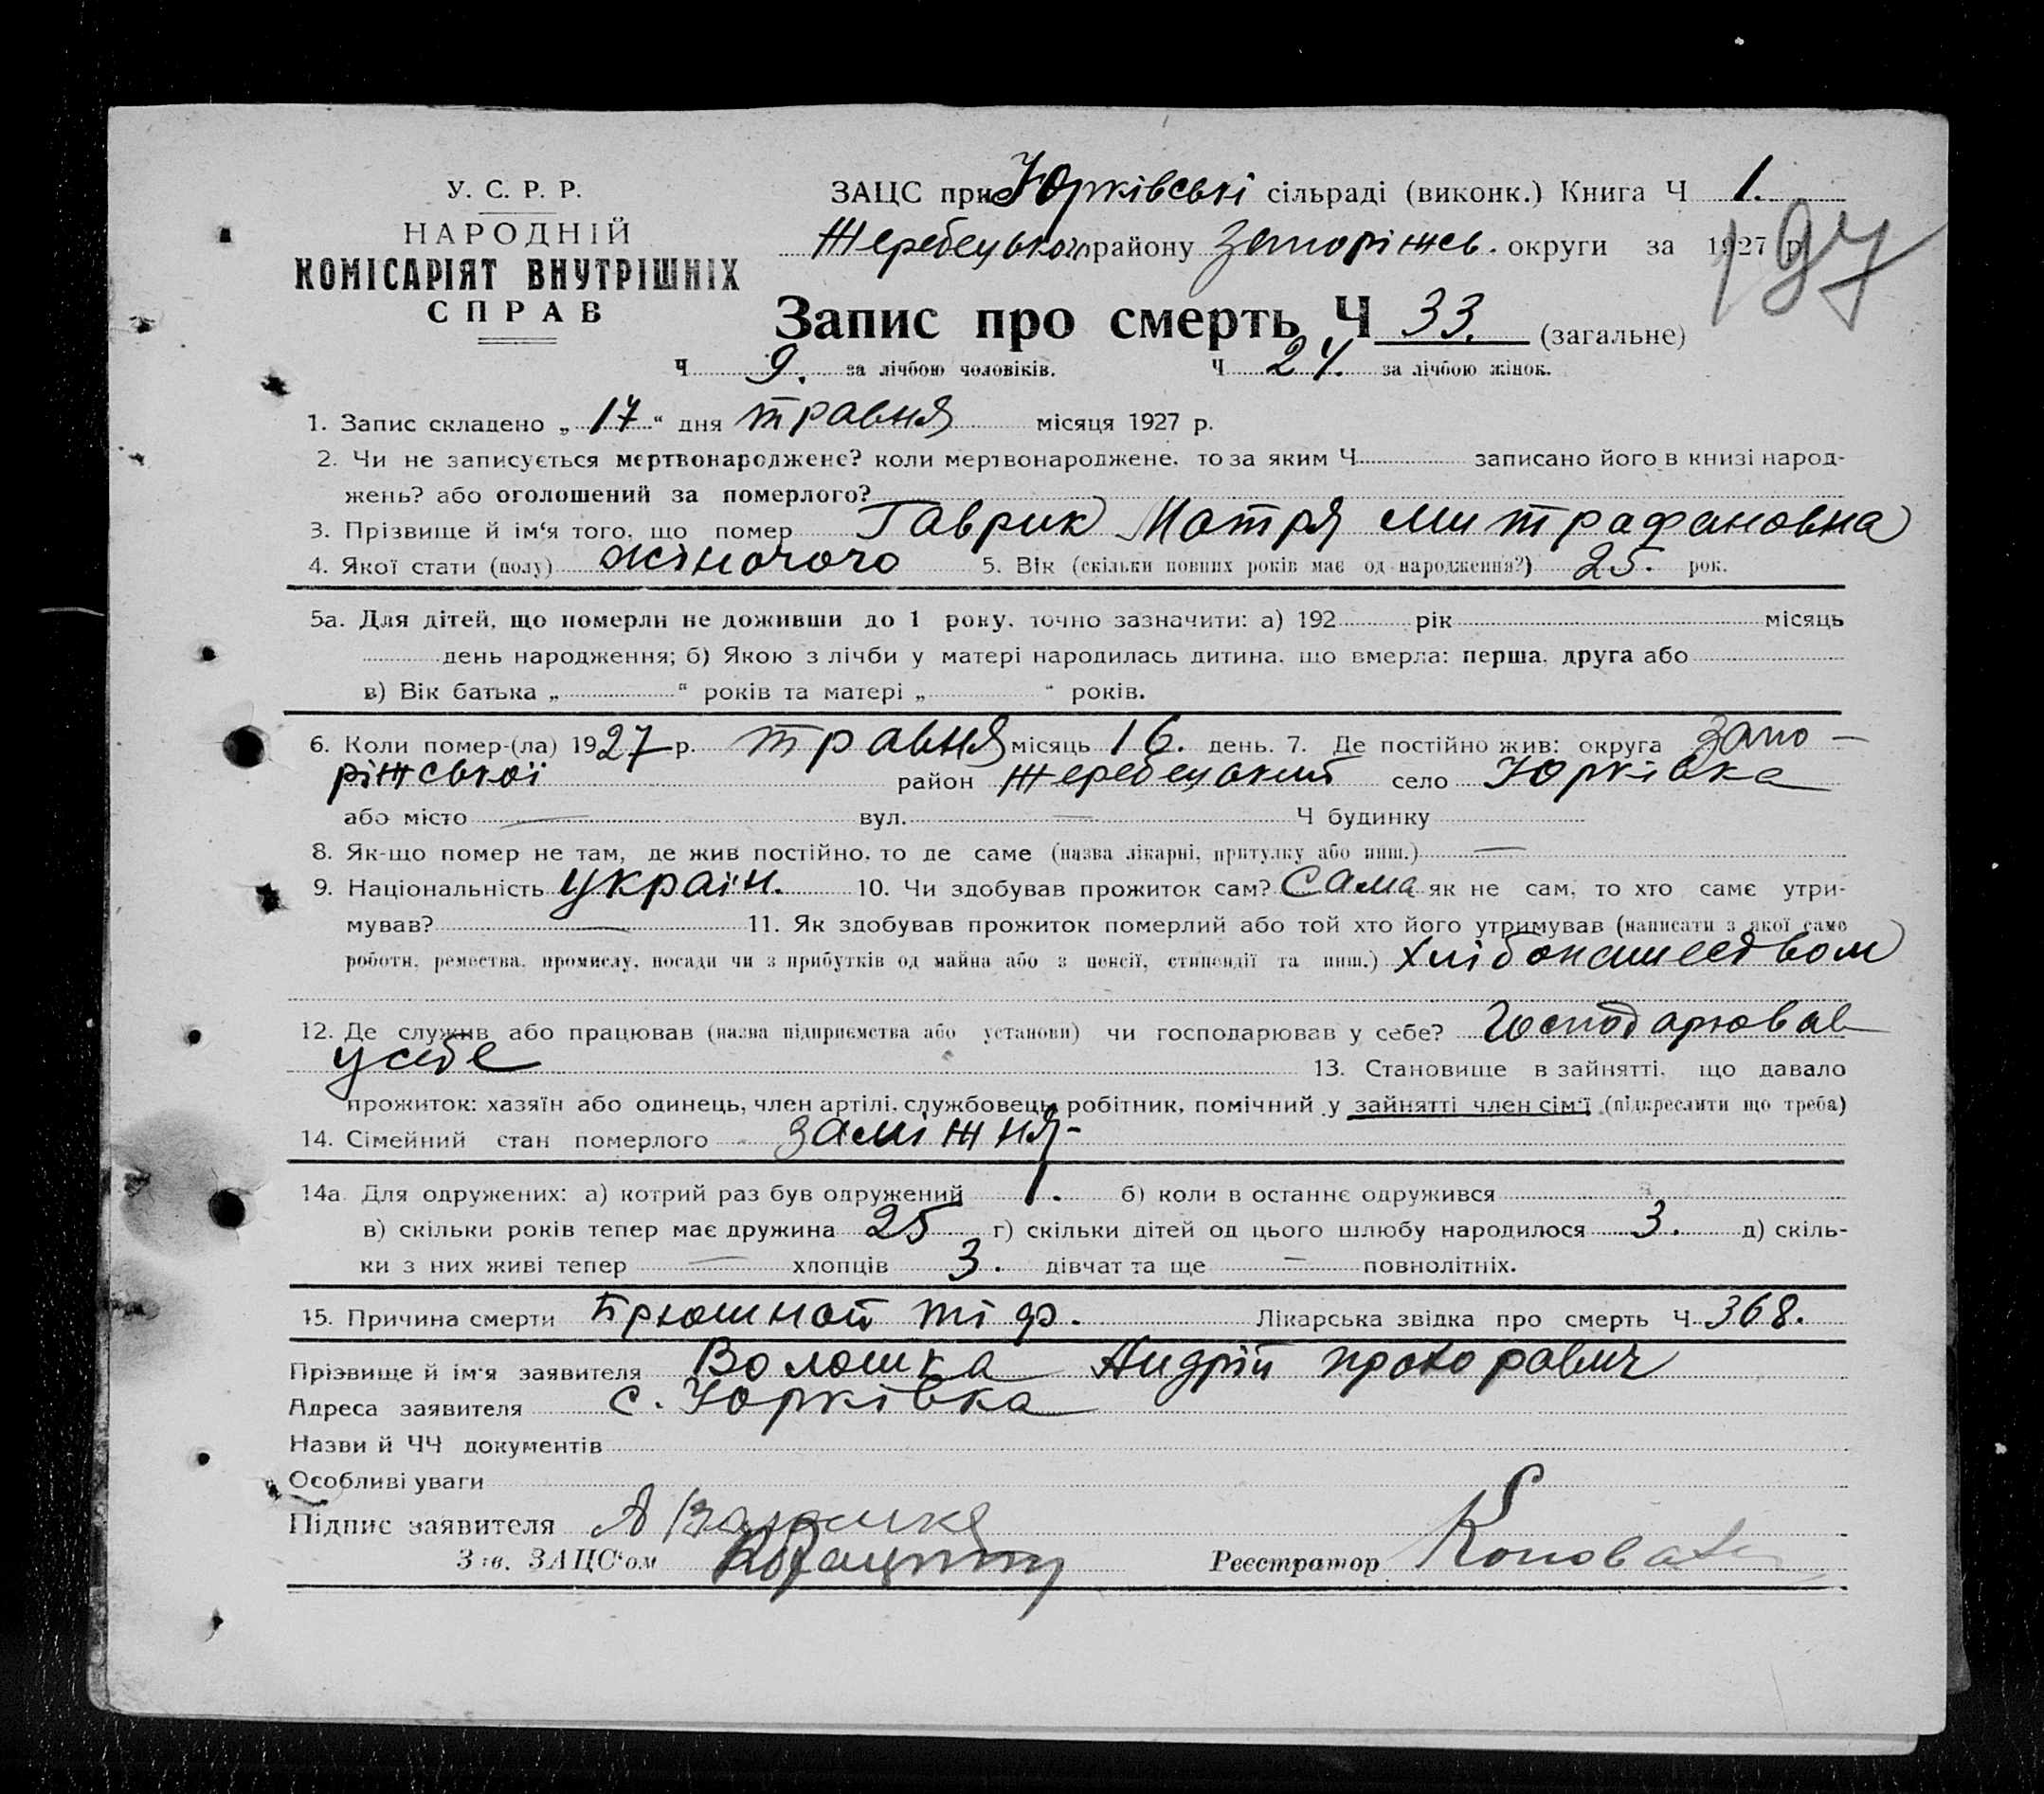 У. С. Р. Р.
НАРОДНІЙ
КОМІСАРІЯТ ВНУТРІШНІХ
СПРАВ
ЗАЦС при Юрківські сільраді (виконк.) Книга Ч 1.
Жеребецького району Запоріжсь. округи за 1927 р.
197
Запис про смерть Ч 33. (загальне)
Ч 9. за лічбою чоловіків. Ч 24. за лічбою жінок.
1. Запис складено „17“ дня травня місяця 1927 р.
2. Чи не записується мертвонароджене? коли мертвонароджене, то за яким Ч записано його в книзі народ-
жень? або оголошений за померлого?
3. Прізвище й ім‘я того, що помер Гаврик Мотря Митрафановна
4. Якої стати (полу) жіночого 5. Вік (скільки повних років має од народження?) 25. рок.
5а. Для дітей, що померли не доживши до 1 року, точно зазначити: а) 192 рік місяць
день народження; б) Якою з лічби у матері народилась дитина, що вмерла: перша, друга або
в) Вік батька „ “ років та матері „ “ років.
6. Коли помер-(ла) 1927 р. травня місяць 16. день. 7. Де постійно жив: округа Запо-
ріжської район Жеребецький село Юрківка
або місто — вул. — Ч будинку
8. Як-що помер не там, де жив постійно, то де саме (назва лікарні, притулку або инш.) —
9. Національність Україн. 10. Чи здобував прожиток сам? Сама як не сам, то хто саме утри-
мував? — 11. Як здобував прожиток померлий або той хто його утримував (написати з якої саме
роботи, ремества, промислу, посади чи з прибутків од майна або з пенсії, стипендії та инш.) хлібопашеством
12. Де служив або працював (назва підприємства або установи) чи господарював у себе? Господарював
усебе 13. Становище в зайнятті, що давало
прожиток: хазяїн або одинець, член артілі, службовець, робітник, помічний у зайнятті член сім‘ї (підкреслити що треба)
14. Сімейний стан померлого заміжня-
14а. Для одружених: а) котрий раз був одружений 1. б) коли в останнє одружився
в) скільки років тепер має дружина 25 г) скільки дітей од цього шлюбу народилося 3. д) скіль-
ки з них живі тепер — хлопців 3. дівчат та ще — повнолітніх.
15. Причина смерти Брюшной тіф. Лікарська звідка про смерть Ч 368.
Прізвище й ім‘я заявителя Волошка Андрій Прохорович
Адреса заявителя с. Юрківка
Назви й ЧЧ документів
Особливі уваги
Підпис заявителя А Волошка
Зав. ЗАЦС‘ом Реєстратор